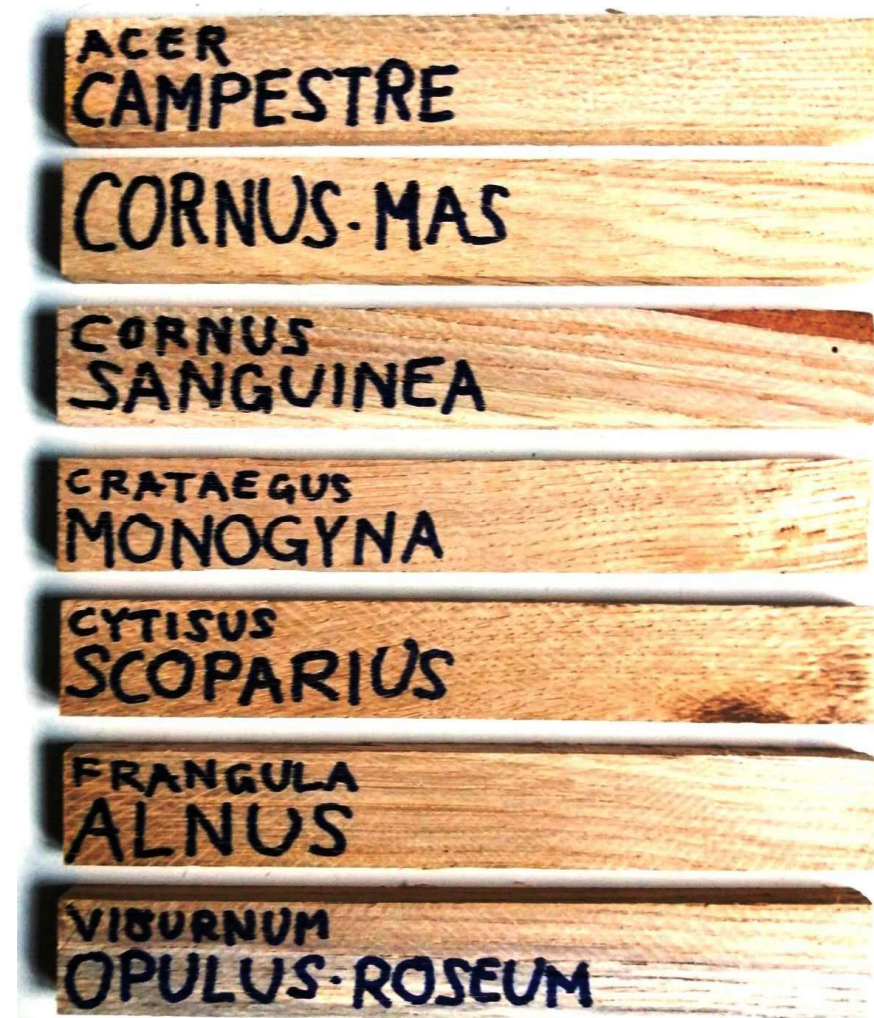 ACER
CAMPESTRE
CORNUS·MAS
CORNUS
SANGUINEA
CRATAEGUS
MONOGYNA
CYTISUS
SCOPARIUS
FRANGULA
ALNUS
VIBURNUM
OPULUS·ROSEUM